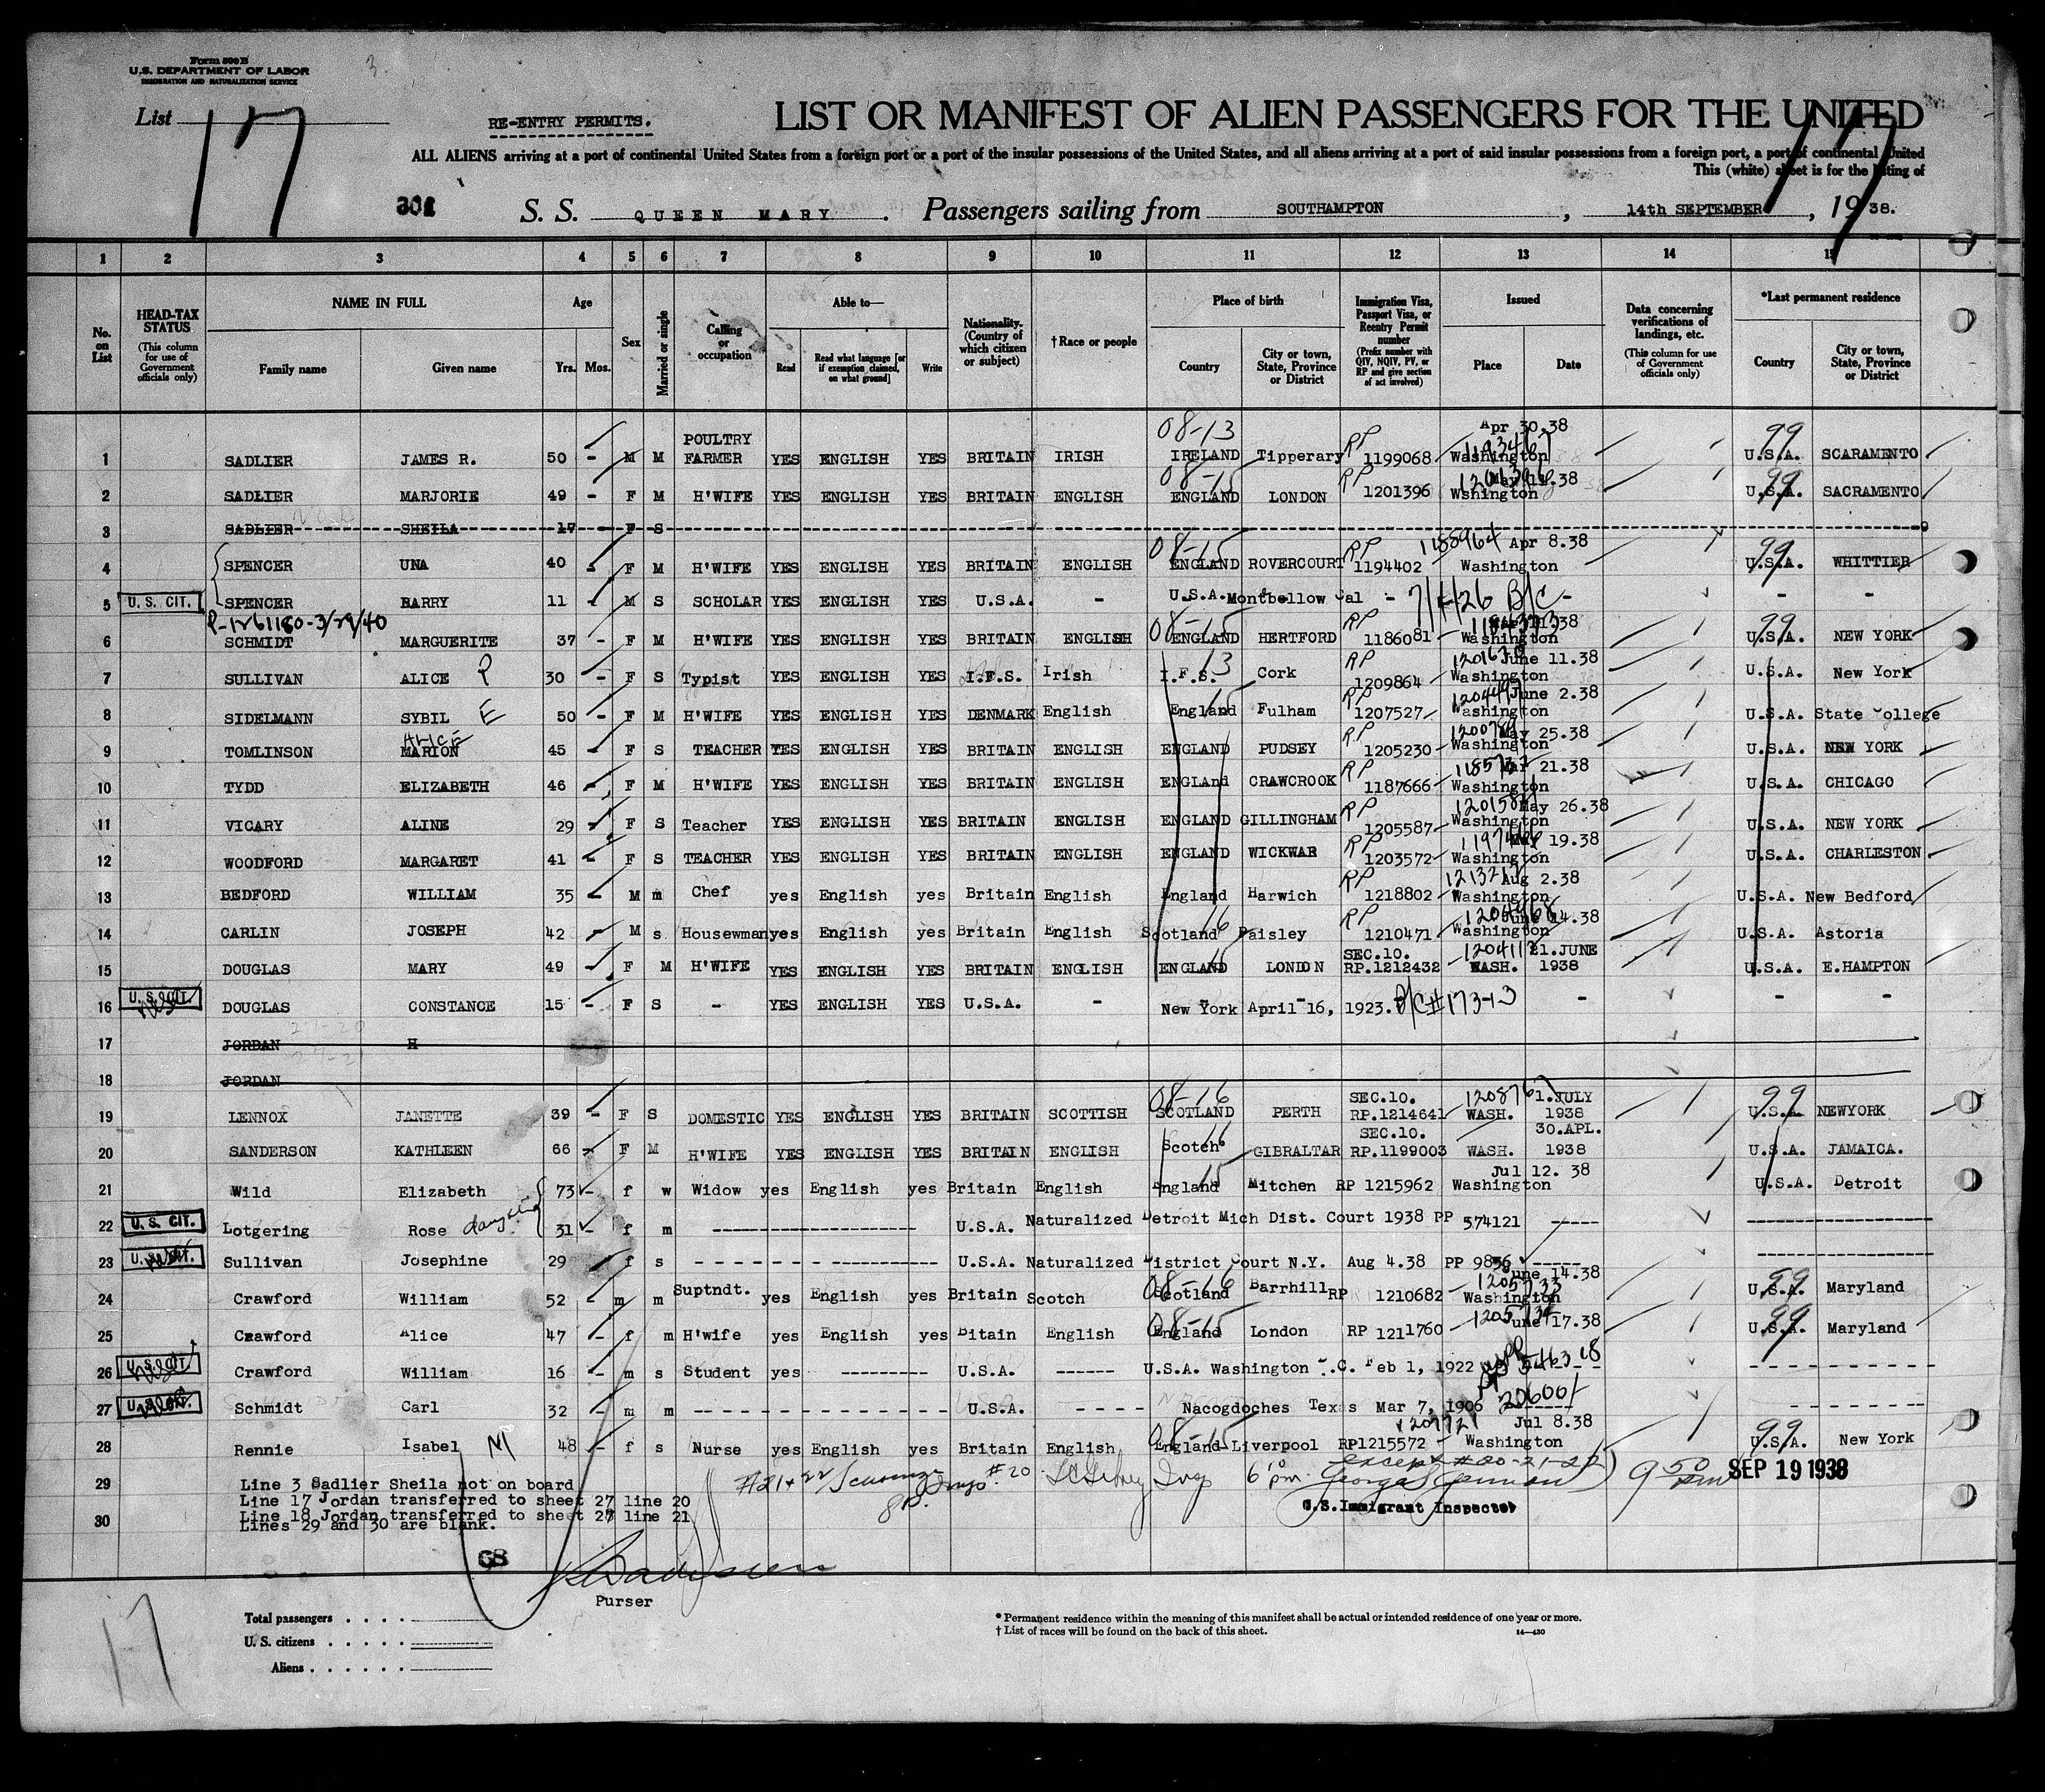 Form 500 B
U.S. DEPARTMENT OF LABOR
IMMIGRATION AND NATURALIZATION SERVICE
3.
List 17
RE-ENTRY PERMITS.
LIST OR MANIFEST OF ALIEN PASSENGERS FOR THE UNITED
17
ALL ALIENS arriving at a port of continental United States from a foreign port or a port of the insular possessions of the United States, and all aliens arriving at a port of said insular possessions from a foreign port, a port of continental United
This (white) sheet is for the listing of
S. S. QUEEN MARY. Passengers sailing from SOUTHAMPTON, 14th SEPTEMBER, 1938.
1 2 3 4 5 6 7 8 9 10 11 12 13 14 15
No. on List
HEAD-TAX STATUS (This column for use of Government officials only)
NAME IN FULL
Family name Given name
Age
Yrs. Mos.
Sex
Married or single
Calling or occupation
Able to—
Read Read what language [or if exemption claimed, on what ground] Write
Nationality. (Country of which citizen or subject)
†Race or people
Place of birth
Country City or town, State, Province or District
Immigration Visa, Passport Visa, or Reentry Permit number (Prefix number with QIV, NQIV, PV, or RP and give section of act involved)
Issued
Place Date
Data concerning verifications of landings, etc. (This column for use of Government officials only)
*Last permanent residence
Country City or town, State, Province or District
1 SADLIER JAMES R. 50 - M M POULTRY FARMER YES ENGLISH YES BRITAIN IRISH 08-13 IRELAND Tipperary RP 1199068 Washington Apr 30.38 99 U.S.A. SCARAMENTO
2 SADLIER MARJORIE 49 - F M H'WIFE YES ENGLISH YES BRITAIN ENGLISH 08-15 ENGLAND LONDON RP 1201396 Wshington 99 U.S.A. SACRAMENTO
3 SADLIER SHEILA 17 - F S
4 SPENCER UNA 40 - F M H'WIFE YES ENGLISH YES BRITAIN ENGLISH 08-15 ENGLAND ROVERCOURT RP 1194402 1188964 Apr 8.38 Washington 99 U.S.A. WHITTIER
5 U. S. CIT. SPENCER BARRY 11 M S SCHOLAR YES ENGLISH YES U.S.A. - U.S.A. Montbellow Cal - 7/4/26 B/C - - -
P-1261180-3/29/40
6 SCHMIDT MARGUERITE 37 - F M H'WIFE YES ENGLISH YES BRITAIN ENGLISH 08-15 ENGLAND HERTFORD RP 1186081 Washington 99 U.S.A. NEW YORK
7 SULLIVAN ALICE P 30 - F S Typist YES ENGLISH YES I.F.S. Irish I.F.S. 13 Cork RP 1209864 June 11.38 Washington U.S.A. New York
8 SIDELMANN SYBIL E 50 - F M H'WIFE YES ENGLISH YES DENMARK English England 15 Fulham RP 1207527 June 2.38 Washington U.S.A. State College
9 TOMLINSON ALICE MARION 45 F S TEACHER YES ENGLISH YES BRITAIN ENGLISH ENGLAND PUDSEY RP 1205230 May 25.38 Washington U.S.A. NEW YORK
10 TYDD ELIZABETH 46 - F M H'WIFE YES ENGLISH YES BRITAIN ENGLISH ENGLAND CRAWCROOK RP 1187666 Mar 21.38 Washington U.S.A. CHICAGO
11 VICARY ALINE 29 - F S Teacher YES ENGLISH YES BRITAIN ENGLISH ENGLAND GILLINGHAM RP 1205587 May 26.38 Washington U.S.A. NEW YORK
12 WOODFORD MARGARET 41 - F S TEACHER YES ENGLISH YES BRITAIN ENGLISH ENGLAND WICKWAR RP 1203572 19.38 Washington U.S.A. CHARLESTON
13 BEDFORD WILLIAM 35 - M m Chef yes English yes Britain English England Harwich RP 1218802 Aug 2.38 Washington U.S.A. New Bedford
14 CARLIN JOSEPH 42 - M s Housewman yes English yes Britain English Scotland 16 Paisley RP 1210471 June 14.38 Washington U.S.A. Astoria
15 DOUGLAS MARY 49 - F M H'WIFE YES ENGLISH YES BRITAIN ENGLISH ENGLAND 15 LONDON SEC.10. RP.1212432 WASH. 21.JUNE 1938 U.S.A. E.HAMPTON
16 U. S. CIT. DOUGLAS CONSTANCE 15 - F S - YES ENGLISH YES U.S.A. - New York April 16, 1923. B/C#17313 - - -
17 JORDAN H
18 JORDAN
19 LENNOX JANETTE 39 - F S DOMESTIC YES ENGLISH YES BRITAIN SCOTTISH 08-16 SCOTLAND PERTH SEC.10. RP.1214641 WASH. 1.JULY 1938 99 U.S.A NEWYORK
20 SANDERSON KATHLEEN 66 - F M H'WIFE YES ENGLISH YES BRITAIN ENGLISH Scotch GIBRALTAR SEC.10. RP.1199003 WASH. 30.APL. 1938 U.S.A. JAMAICA.
21 Wild Elizabeth 73 - f w Widow yes English yes Britain English England 15 Mitchen RP 1215962 Jul 12. 38 Washington U.S.A. Detroit
22 U. S. CIT. Lotgering Rose daughter 31 - f m U.S.A. Naturalized Detroit Mich Dist. Court 1938 PP 574121
23 U. S. CIT. Sullivan Josephine 29 f s U.S.A. Naturalized District Court N.Y. Aug 4.38 PP 9836
24 Crawford William 52 - m m Suptndt. yes English yes Britain Scotch 08-16 Scotland Barrhill RP 1210682 June 14.38 Washington 99 U.S.A. Maryland
25 Crawford Alice 47 - f m H'wife yes English yes Bitain English 08-15 England London RP 1211760 June 17.38 99 U.S.A. Maryland
26 U. S. CIT. Crawford William 16 - m s Student yes U.S.A. U.S.A. Washington D.C. Feb 1, 1922
27 U. S. CIT. Schmidt Carl 32 - m m U.S.A. Nacogdoches Texas Mar 7, 1906
28 Rennie Isabel M 48 - f s Nurse yes English yes Britain English 08-15 England Liverpool RP1215572 Jul 8.38 Washington 99 U.S.A. New York
29 Line 3 Sadlier Sheila not on board
Line 17 Jordan transferred to sheet 27 line 20
30 Line 18 Jordan transferred to sheet 27 line 21
Lines 29 and 30 are blank.
except #20-21-22
SEP 19 1938
U.S. Immigrant Inspector
68
Purser
17
Total passengers
U. S. citizens
Aliens
* Permanent residence within the meaning of this manifest shall be actual or intended residence of one year or more.
† List of races will be found on the back of this sheet.
14—430